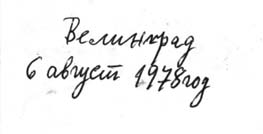 Велинград
6 август 1978год